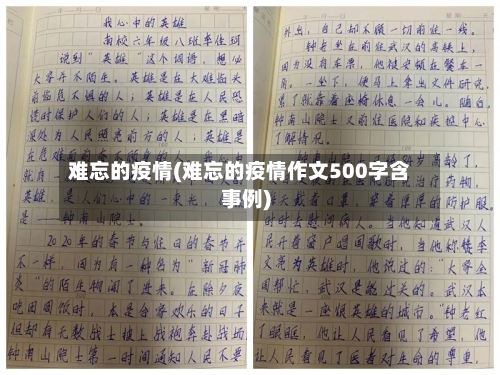 我心中的英雄
南校六年级八班李佳珂
说到“英雄”这个词语，想必
大家并不陌生。英雄是在大难临头
前临危不惧的人；英雄是在人民恐
慌时保护人们的人；英雄是在黑暗
深处为人民照亮前方的人；英雄是
在危难
就是
英雄，是人们心中的一束光，
是——钟南山院士。
2020年的春节与往日的春节并
不一样，因为有一种名为“新冠肺
炎”的陌生物闯了进来。在除夕夜
吃团圆饭时，本是合家欢乐的日子
但却有无数战士披上战袍奔赴战场，
钟南山院士第一时间通知人民不要
外出，自己却不顾一切前往一线。
钟老坐在前往武汉的高铁上，
因为没有车票，他被安顿在餐车一
角。一坐下，便马上拿出文件研究，
累了就靠着座椅休息一会儿。随后，
钟南山院士又前往医院和疾控中心
了解情况。
岁高龄了，
治疗药物，
天戴着口罩，穿着厚厚的防护服，
时时去慰问病人。当他知道武汉人
民开着窗户唱国歌时，当他称赞李
文亮为英雄时，他说过的：“大家全
国帮忙，武汉是能过关的。武汉本
来就是一座很英雄的城市。”钟老红
了眼眶，他让人民看见了希望，他
让人民看见了医者对生命的尊重，
难忘的疫情(难忘的疫情作文500字含
事例)